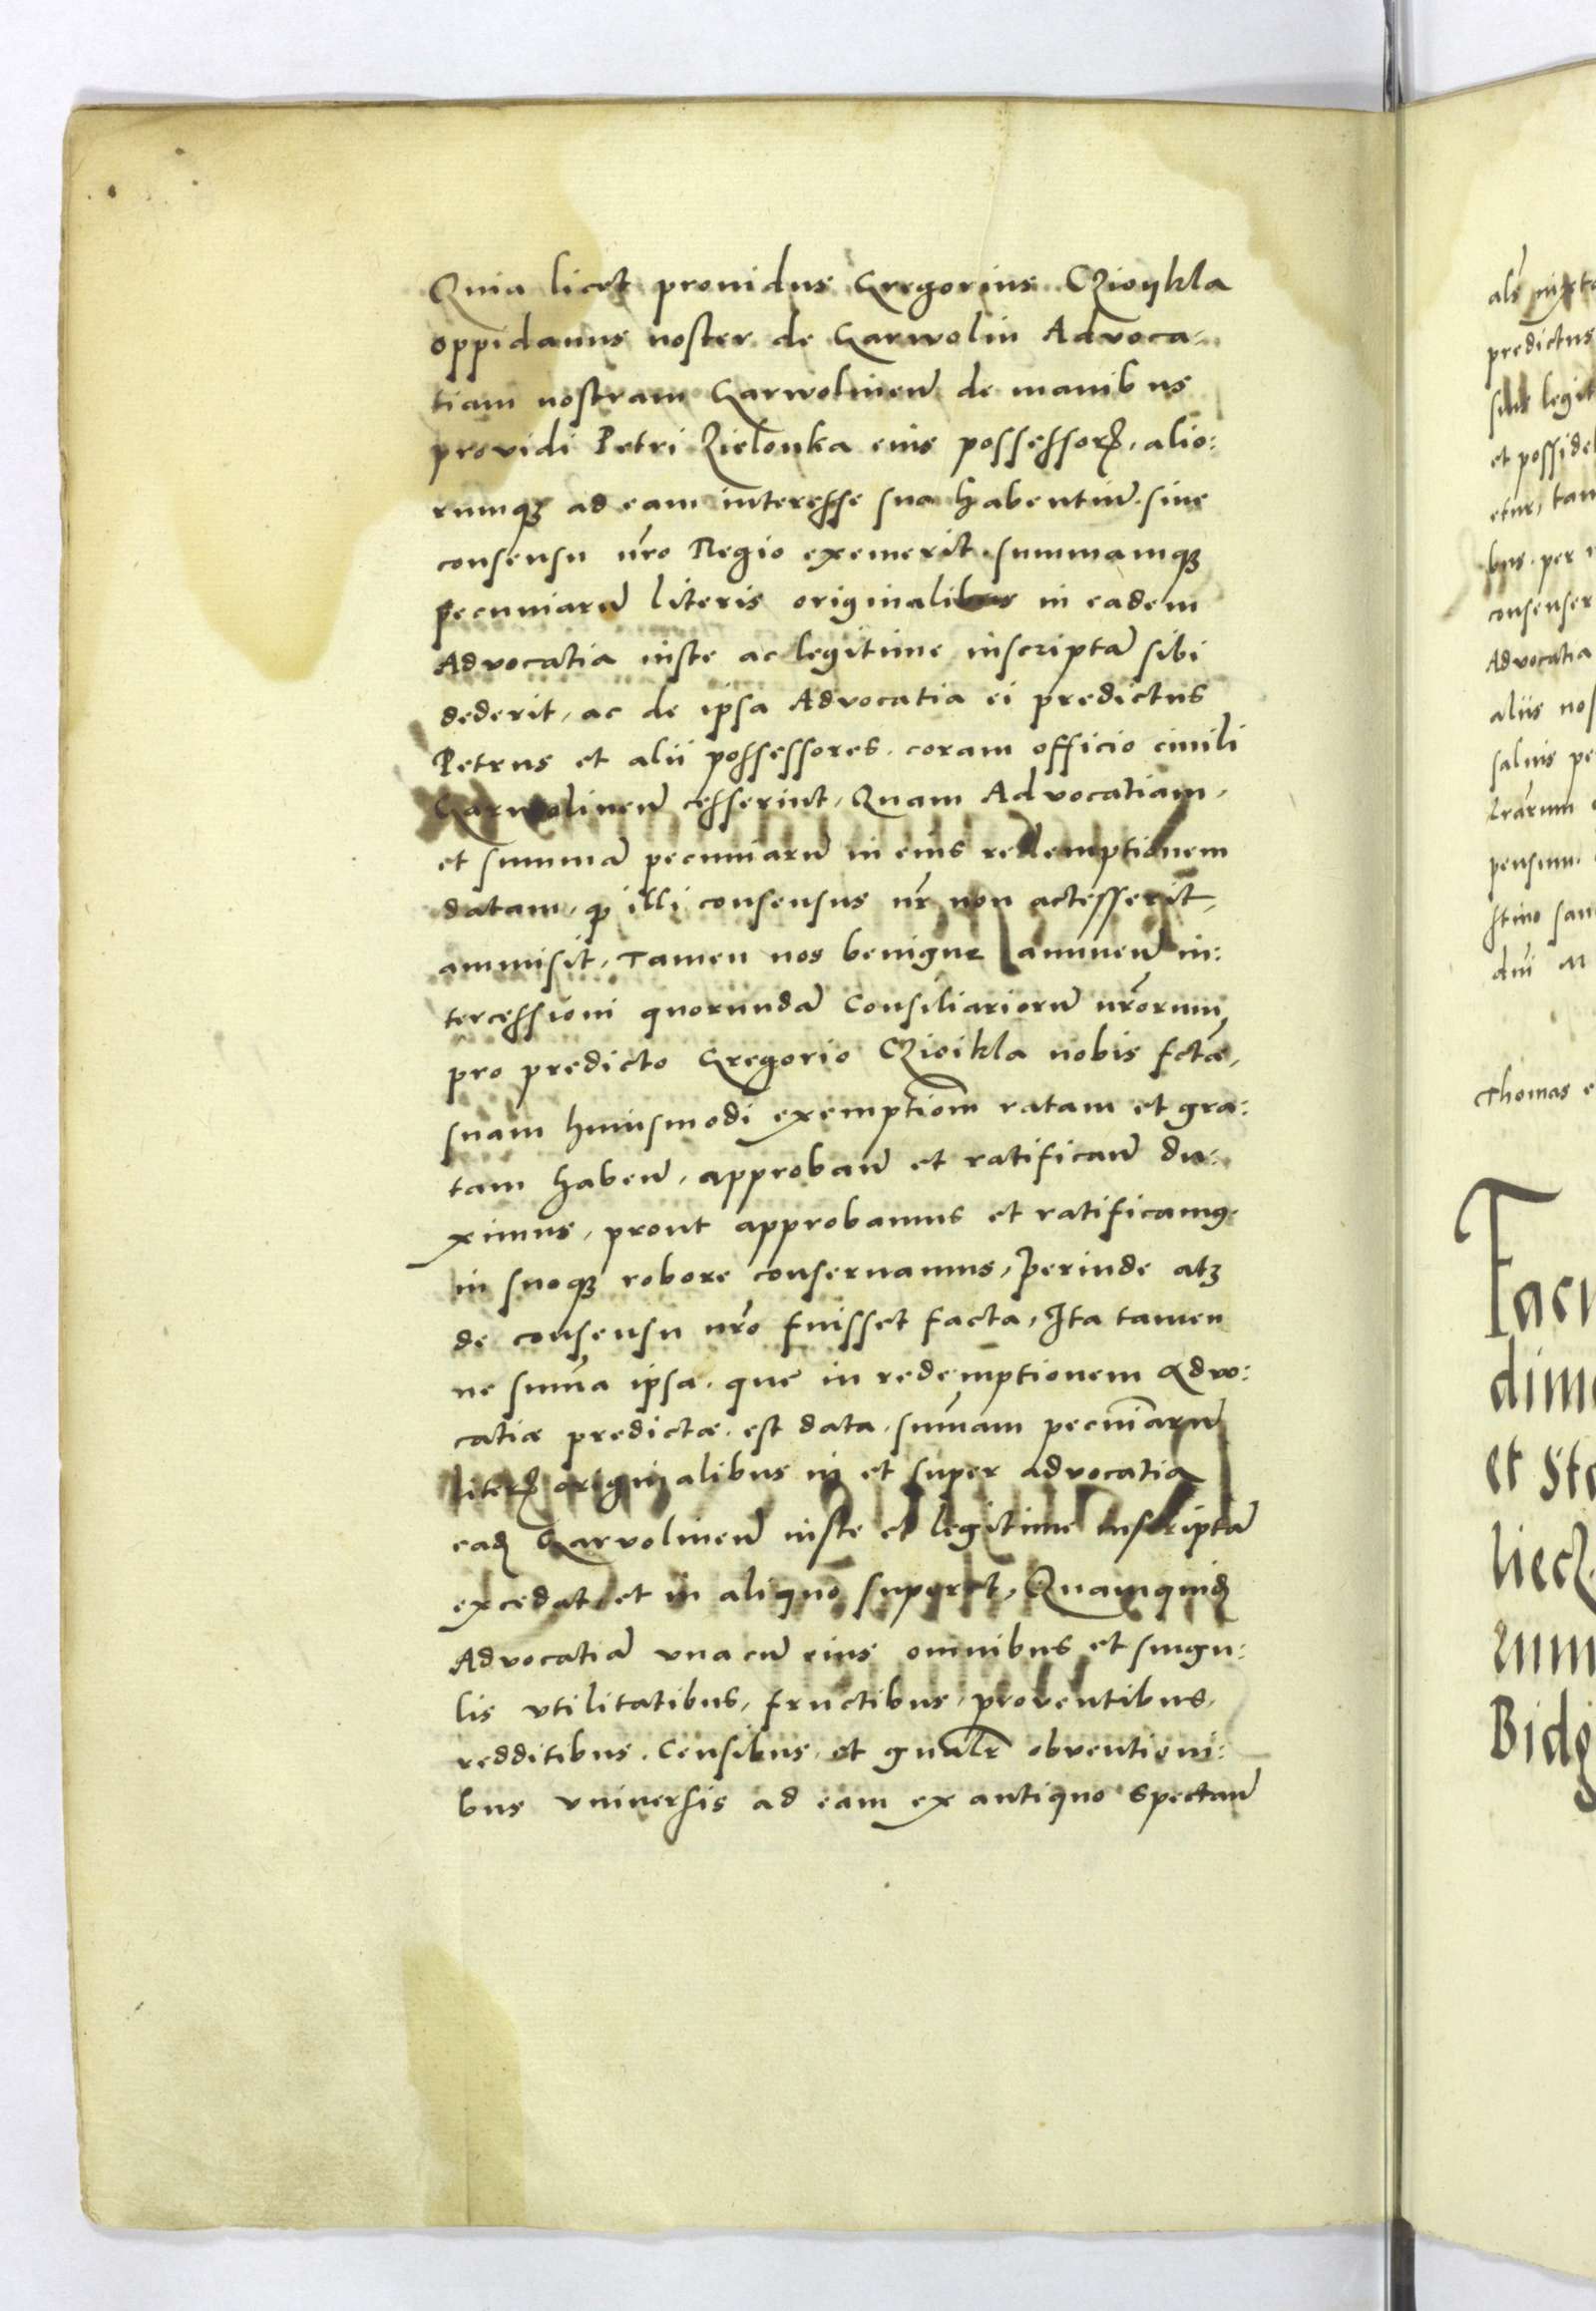 Quia licet prouidus Gregorius Czioykla
oppidanus noster de Garwolin Advoca-
tiam nostram Garwolineñ de manibus
providi Petri Zielonka eius possessorꝭ, alio:
rumqꝫ ad eam interesse sua habentiũ sine
consensu nřo Regio exemerit summamqꝫ
pecuniarũ literis originalibus in eadem
Advocatia iuste ac legitime inscriptã sibi
dederit, ac de ipsa Advocatia ei predictus
Petrus et alii possessores coram officio ciuili
Garwolineñ cesserint, Quam Advocatiam,
et summã pecuniarũ in eius redemptionem
datam, qꝫ illi consensus nř non accesserit,
ammisit, Tamen nos benigne annueñ in:
tercessioni quorundã Consiliariorũ nřorum
pro predicto Gregorio Czioikla nobis fctæ,
suam huiusmodi exemptiom̃ ratam et gra:
tam habeñ, approbañ et ratificañ du:
ximus, prout approbamus et ratificamꝰ
in suoqꝫ robore conseruamus, perinde atqꝫ
de consensu nřo fuisset facta, Ita tamen
ne sum̃a ipsa, que in redemptionem Advo:
catiæ predictæ est data, sum̃am pecuniarũ
literꝭ originalibus in et super advocatia
eadꝫ Garvolineñ iuste et legitime inscriptã
excedat et in aliquo superet, Quamquidꝫ
Advocatiã vna cũ eius omnibus et singu:
lis vtilitatibus, fructibus, proventibus,
redditibus, Censibus, et gnalř obventioni:
bus vniuersis ad eam ex antiquo spectañ
alš iuxta
predictus
sine legit
et possideb
etur, tam
bus per
consenser
Advocatia
aliis nos
saluis pe
lrarum
pensum
stmo san
dni M
Thomas e
Facu
dimo
et Sta
liecz
rum
Bidg